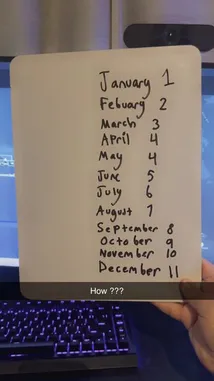 January 1
Febuary 2
March 3
April 4
May 4
June 5
July 6
August 7
September 8
October 9
November 10
December 11
How ???